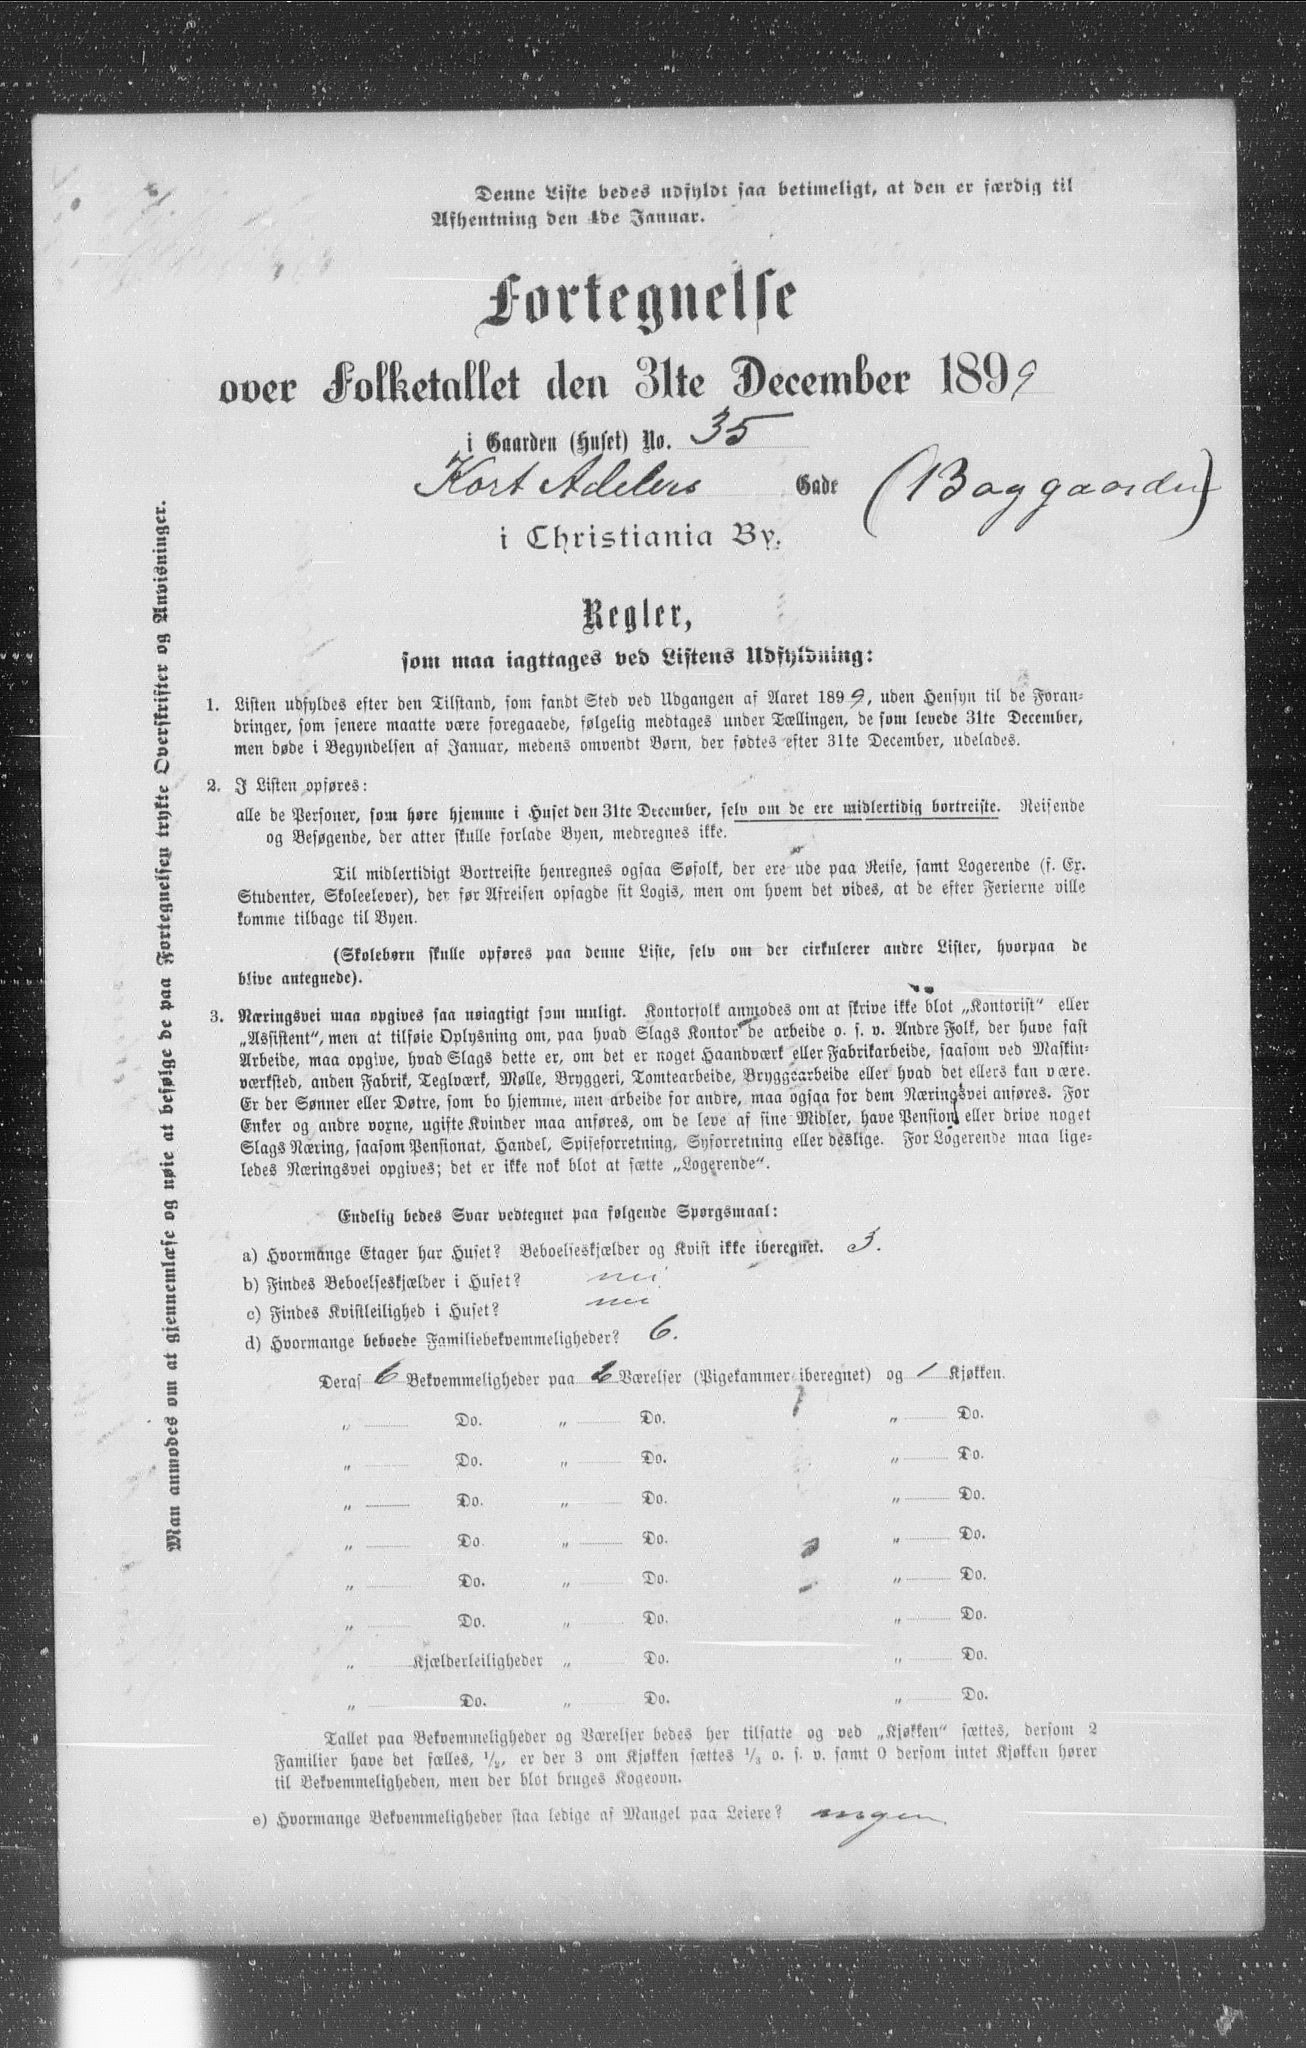 Denne Liste bedes udfyldt saa betimeligt, at den er færdig til
Afhentning den 4de Januar.
Fortegnelse
over Folketallet den 31te December 1899
i Gaarden (Huset) No. 35
Kort Adelers Gade (Baggaarden)
i Christiania By.
Regler,
som maa iagttages ved Listens Udfyldning:
1. Listen udfyldes efter den Tilstand, som fandt Sted ved Udgangen af Aaret 1899, uden Hensyn til de Foran-
dringer, som senere maatte være foregaaede, følgelig medtages under Tællingen, de som levede 31te December,
men døde i Begyndelsen af Januar, medens omvendt Børn, der fødtes efter 31te December, udelades.
2. I Listen opføres:
alle de Personer, som høre hjemme i Huset den 31te December, selv om de ere midlertidig bortreiste. Reisende
og Besøgende, der atter skulle forlade Byen, medregnes ikke.
Til midlertidigt Bortreiste henregnes ogsaa Søfolk, der ere ude paa Reise, samt Logerende (f. Ex.
Studenter, Skoleelever), der før Afreisen opsagde sit Logis, men om hvem det vides, at de efter Ferierne ville
komme tilbage til Byen.
(Skolebørn skulle opføres paa denne Liste, selv om der cirkulerer andre Lister, hvorpaa de
blive antegnede).
3. Næringsvei maa opgives saa nøiagtigt som muligt. Kontorfolk anmodes om at skrive ikke blot „Kontorist“ eller
„Assistent“, men at tilføie Oplysning om, paa hvad Slags Kontor de arbeide o. s. v. Andre Folk, der have fast
Arbeide, maa opgive, hvad Slags dette er, om det er noget Haandværk eller Fabrikarbeide, saasom ved Maskin-
værksted, anden Fabrik, Teglværk, Mølle, Bryggeri, Tomtearbeide, Bryggearbeide eller hvad det ellers kan være.
Er der Sønner eller Døtre, som bo hjemme, men arbeide for andre, maa ogsaa for dem Næringsvei anføres. For
Enker og andre voxne, ugifte Kvinder maa anføres, om de leve af sine Midler, have Pension eller drive noget
Slags Næring, saasom Pensionat, Handel, Spiseforretning, Syforretning eller deslige. For Logerende maa lige-
ledes Næringsvei opgives; det er ikke nok blot at sætte „Logerende“.
Endelig bedes Svar vedtegnet paa følgende Spørgsmaal:
a) Hvormange Etager har Huset? Beboelseskjælder og Kvist ikke iberegnet. 3.
b) Findes Beboelseskjælder i Huset? nei
c) Findes Kvistleilighed i Huset? nei
d) Hvormange beboede Familiebekvemmeligheder? 6.
Deraf 6 Bekvemmeligheder paa 2 Værelser (Pigekammer iberegnet) og 1 Kjøkken.
„ Do. „ Do. „ Do.
„ Do. „ Do. „ Do.
„ Do. „ Do. „ Do.
„ Do. „ Do. „ Do.
„ Do. „ Do. „ Do.
„ Do. „ Do. „ Do.
„ Kjælderleiligheder „ Do. „ Do.
„ Do. „ Do. „ Do.
Tallet paa Bekvemmeligheder og Værelser bedes her tilsatte og ved „Kjøkken“ sættes, dersom 2
Familier have det fælles, 1/2, er der 3 om Kjøkken sættes 1/3 o. s. v. samt 0 dersom intet Kjøkken hører
til Bekvemmeligheden, men der blot bruges Kogeovn.
e) Hvormange Bekvemmeligheder staa ledige af Mangel paa Leiere? ingen
Man anmodes om at gjennemlæse og nøie at befølge de paa Fortegnelsen trykte Overskrifter og Anvisninger.